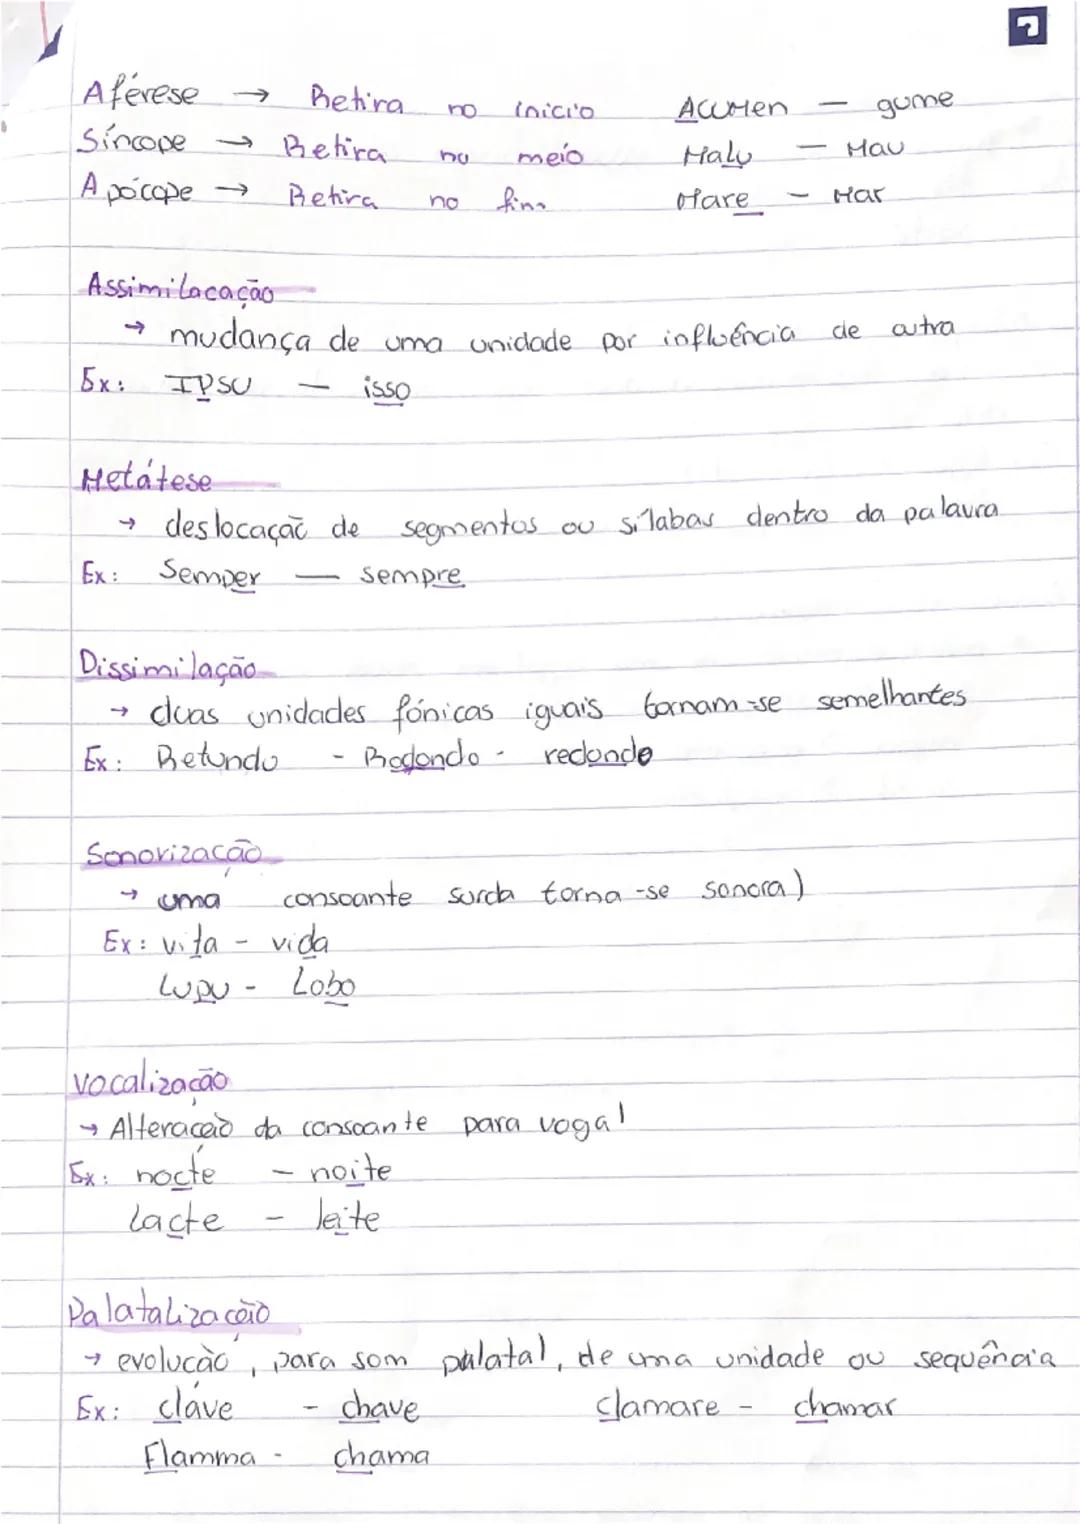 Aférese → Retira no início Acumen – gume
Síncope → Retira no meio Malu – Mau
Apócope → Retira no fim Mare – Mar
Assimilacação
→ mudança de uma unidade por influência de outra
Ex: IPSU – isso
Metátese
→ deslocação de segmentos ou sílabas dentro da palavra
Ex: Semper – sempre
Dissimilação
→ duas unidades fónicas iguais tornam-se semelhantes
Ex: Retundu - Rodondo - redondo
Sonorização
→ uma consoante surda torna-se sonora)
Ex: vita - vida
Lupu - Lobo
Vocalização
→ Alteração da consoante para vogal
Ex: nocte – noite
Lacte – leite
Palatalização
→ evolução, para som palatal, de uma unidade ou sequência
Ex: clave - chave Clamare - chamar
Flamma - chama